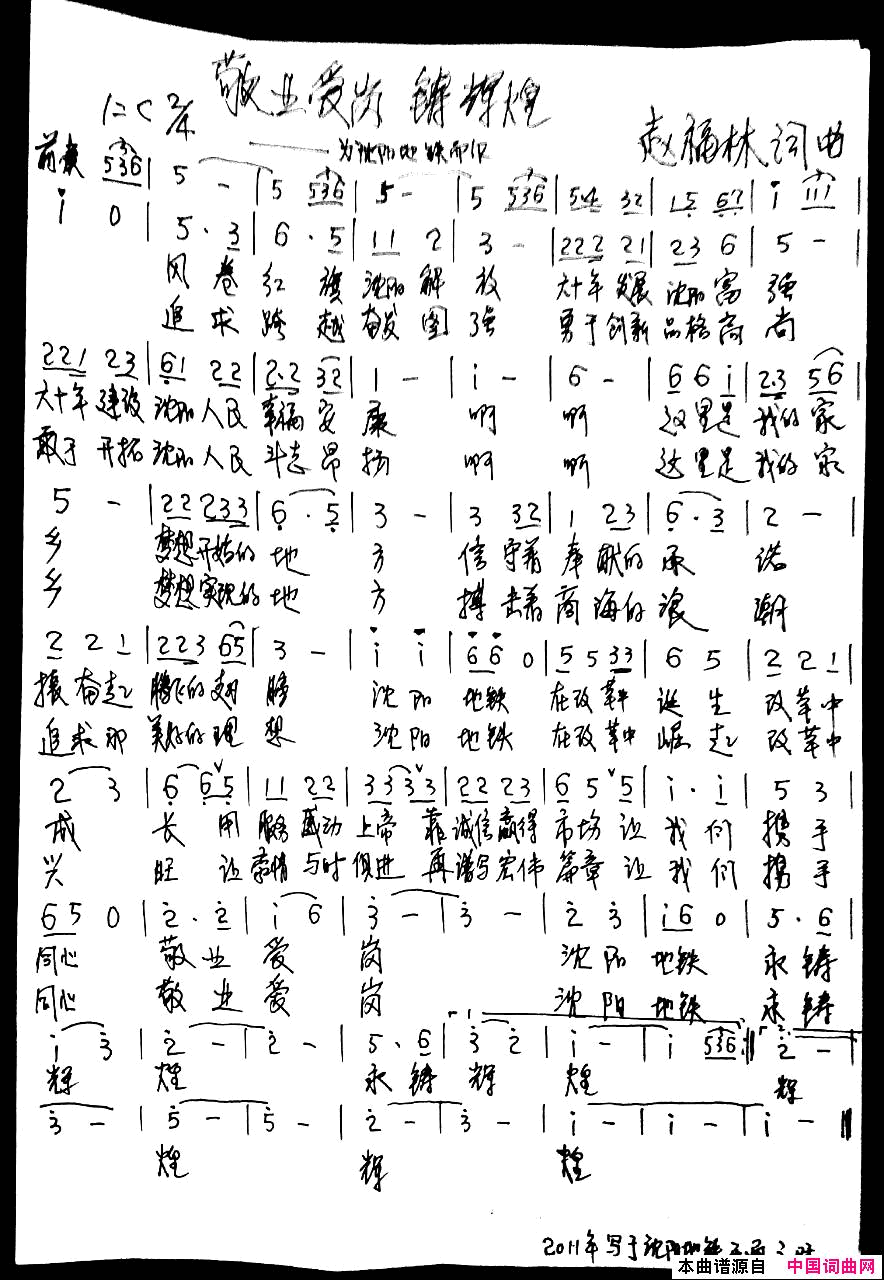 敬业爱岗 铸辉煌
1=C 2/4
——为沈阳地铁而作
赵福林 词曲
前奏 536 | 5 - | 5 536 | 5 - | 5 536 | 5·4 32 | 15 67 | i 111 |
i 0 | 5·3 | 6·5 | 11 2 | 3 - | 222 21 | 23 6 | 5 -
风卷红旗沈阳解放 六十年发展沈阳富强
追求跨越奋发图强 勇于创新品格高尚
221 23 | 61 22 | 2·2 32 | 1 - | i - | 6 - | 66i | 2·3 56 |
六十年建设沈阳人民幸福安康 啊 啊 这里是我的家
敢于开拓沈阳人民斗志昂扬 啊 啊 这里是我的家
5 - | 22 233 | 6·5 | 3 - | 3 32 | 1 23 | 6·3 | 2 - |
乡 梦想开始的地方 信守着奉献的承诺
乡 梦想实现的地方 搏击着商海的浪潮
2 21 | 223 65 | 3 - | i i | 66 0 | 55 33 | 6 5 | 2 21 |
振奋起腾飞的翅膀 沈阳地铁 在改革中诞生 改革中
追求那美好的理想 沈阳地铁 在改革中崛起 改革中
2 3 | 6 6v5 | 11 22 | 33 3v3 | 22 23 | 65v5 | i·i | 5 3 |
成长 用服务感动上帝 靠诚信赢得市场 让我们携手
兴旺 让豪情与时俱进 再谱写宏伟篇章 让我们携手
65 0 | 2·2 | i 6 | 3 - | 3 - | 2 3 | i6 0 | 5·6 |
同心 敬业爱岗 沈阳地铁 永铸
同心 敬业爱岗 沈阳地铁 永铸
i 3 | 2 - | 2 - | 5·6 | 3 2 | i - | i 536 :| 2 - |
辉煌 永铸辉煌 辉
3 - | 5 - | 5 - | 2 - | 3 - | i - | i - | i - ‖
煌 辉 煌
2011年写于沈阳地铁
本曲谱源自 中国词曲网